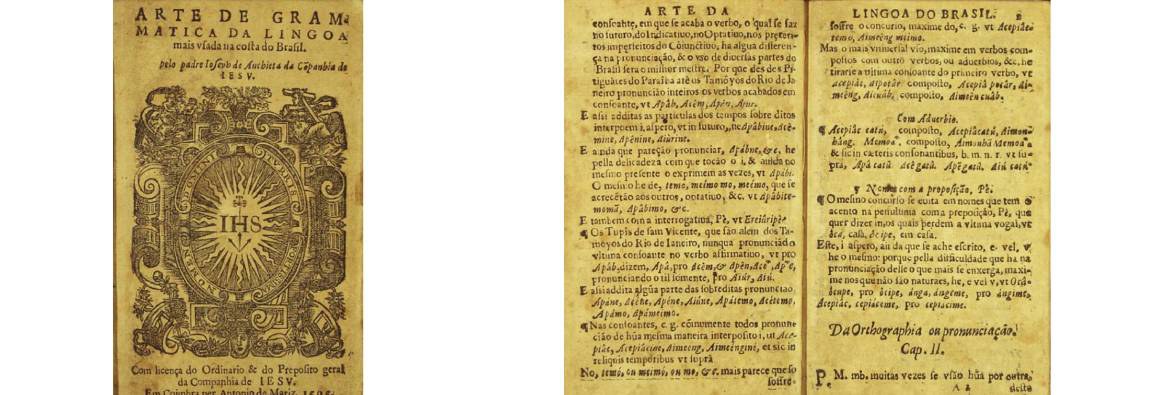 ARTE DE GRAM
MATICA DA LINGOA
mais vsada na costa do Brasil.
pelo padre Ioseph de Anchieta da Cõpanhia de
IESV.
IHS
Com licença do Ordinario & do Preposito geral
da Companhia de IESV.
Em Coimbra per Antonio de Mariz. 1595.
ARTE DA
consoante, em que se acaba o verbo, o qual se faz
no futuro, do Indicatiuo, no Optatiuo, nos preteri-
tos imperfeitos do Cõiunctiuo, ha algũa differen-
ça na pronunciação, & o vso de diuersas partes do
Brasil sera o milhor mestre. Por que des dos Pi-
tiguâres do Paraiba atê os Tamôyos do Rio de Ia
neiro pronuncião inteiros os verbos acabados em
consoante, vt Apâb, Acêm, Apên, Aiur.
E assi additas as particulas dos tempos sobre ditos
interpoem i, aspero, vt in futuro,
mine, Apênine, Aiûrine.
E ainda que pareção pronunciar, Apâbne, &c, he
pella delicadeza com que tocão o i, & ainda no
mesmo presente o exprimem as vezes, vt Apâbi.
O mesmo he de, temo, meimo mo, meimo, que se
acrecẽtão aos outros, optatiuo, &c. vt Apâbite-
momã, Apâbimo, &c.
E tambem com a interrogatiua, Pè, vt Ereiûripè?
¶ Os Tupîs de sam Vicente, que são alem dos Ta-
môyos do Rio de Ianeiro, nunqua pronuncião a
vltima consoante no verbo affirmatiuo, vt pro
Apâb, dizem, Apâ, pro Acêm, & Apên,
pronunciando o til somente, pro Aiûr, Aiû.
E assi addita algũa parte das sobreditas pronuncião
Apâne, Acẽne, Apẽne, Aiûne, Apâtemo, Acẽtemo,
Apâmo, Apâmeimo.
¶ Nas consoantes, e. g. cõmumente todos pronun-
cião de hũa mesma maneira interposito i, ut Ace-
piâc, Acepiâcine, Aimeêng, Aimeêngine, et sic in
reliquis temporibus vt suprà
No, temo, ou meimo, ou mo, &c. mais parece que so
soffre-
LINGOA DO BRASIL. 2
soffre o concurso, maxime do, c. g. vt Acepiâc
temo, Aimeêng meimo.
Mas o mais vniuersal vso, maxime em verbos com-
postos com outro verbos, ou aduerbios, &c. he
tirarse a vltima consoante do primeiro verbo, vt
acepiâc, aipotâr: composto, Acepiâ potâr, Ai-
meêng, Aicuâb, composto, Aimeẽn cuâb.
Com Aduerbio.
¶ Acepiâc catû, composto, Acepiâcatû, Aimon-
hâng. Memoã, composto, Aimonhã Memoã
& sic in cæteris consonantibus, b. m. n. r. vt su-
pra, Apâ catû. Acẽ gatû. Apẽ gatû. Aiû catû.
¶ Nomes com a preposição, Pè.
¶ O mesmo concurso se euita em nomes que tem o
acento na penultima com a preposição, Pè, que
quer dizer in, os quais perdem a vltima vogal, vt
òca, casa, òcipe, em casa.
Este, i aspero, ainda que se ache escrito, e. vel, v,
he o mesmo: porque pella difficuldade que ha na
pronunciação delle o que mais se enxerga, maxi-
me nos que não são naturaes, he, e vel v, vt
òcupe, pro òcipe, ânga, ângeme, pro ângime,
Acepiâc, cepiâceme, pro cepiacime.
Da Orthographia ou pronunciação.
Cap. II.
P M. mb. muitas vezes se vsão hũa por outra,
A 2 desta